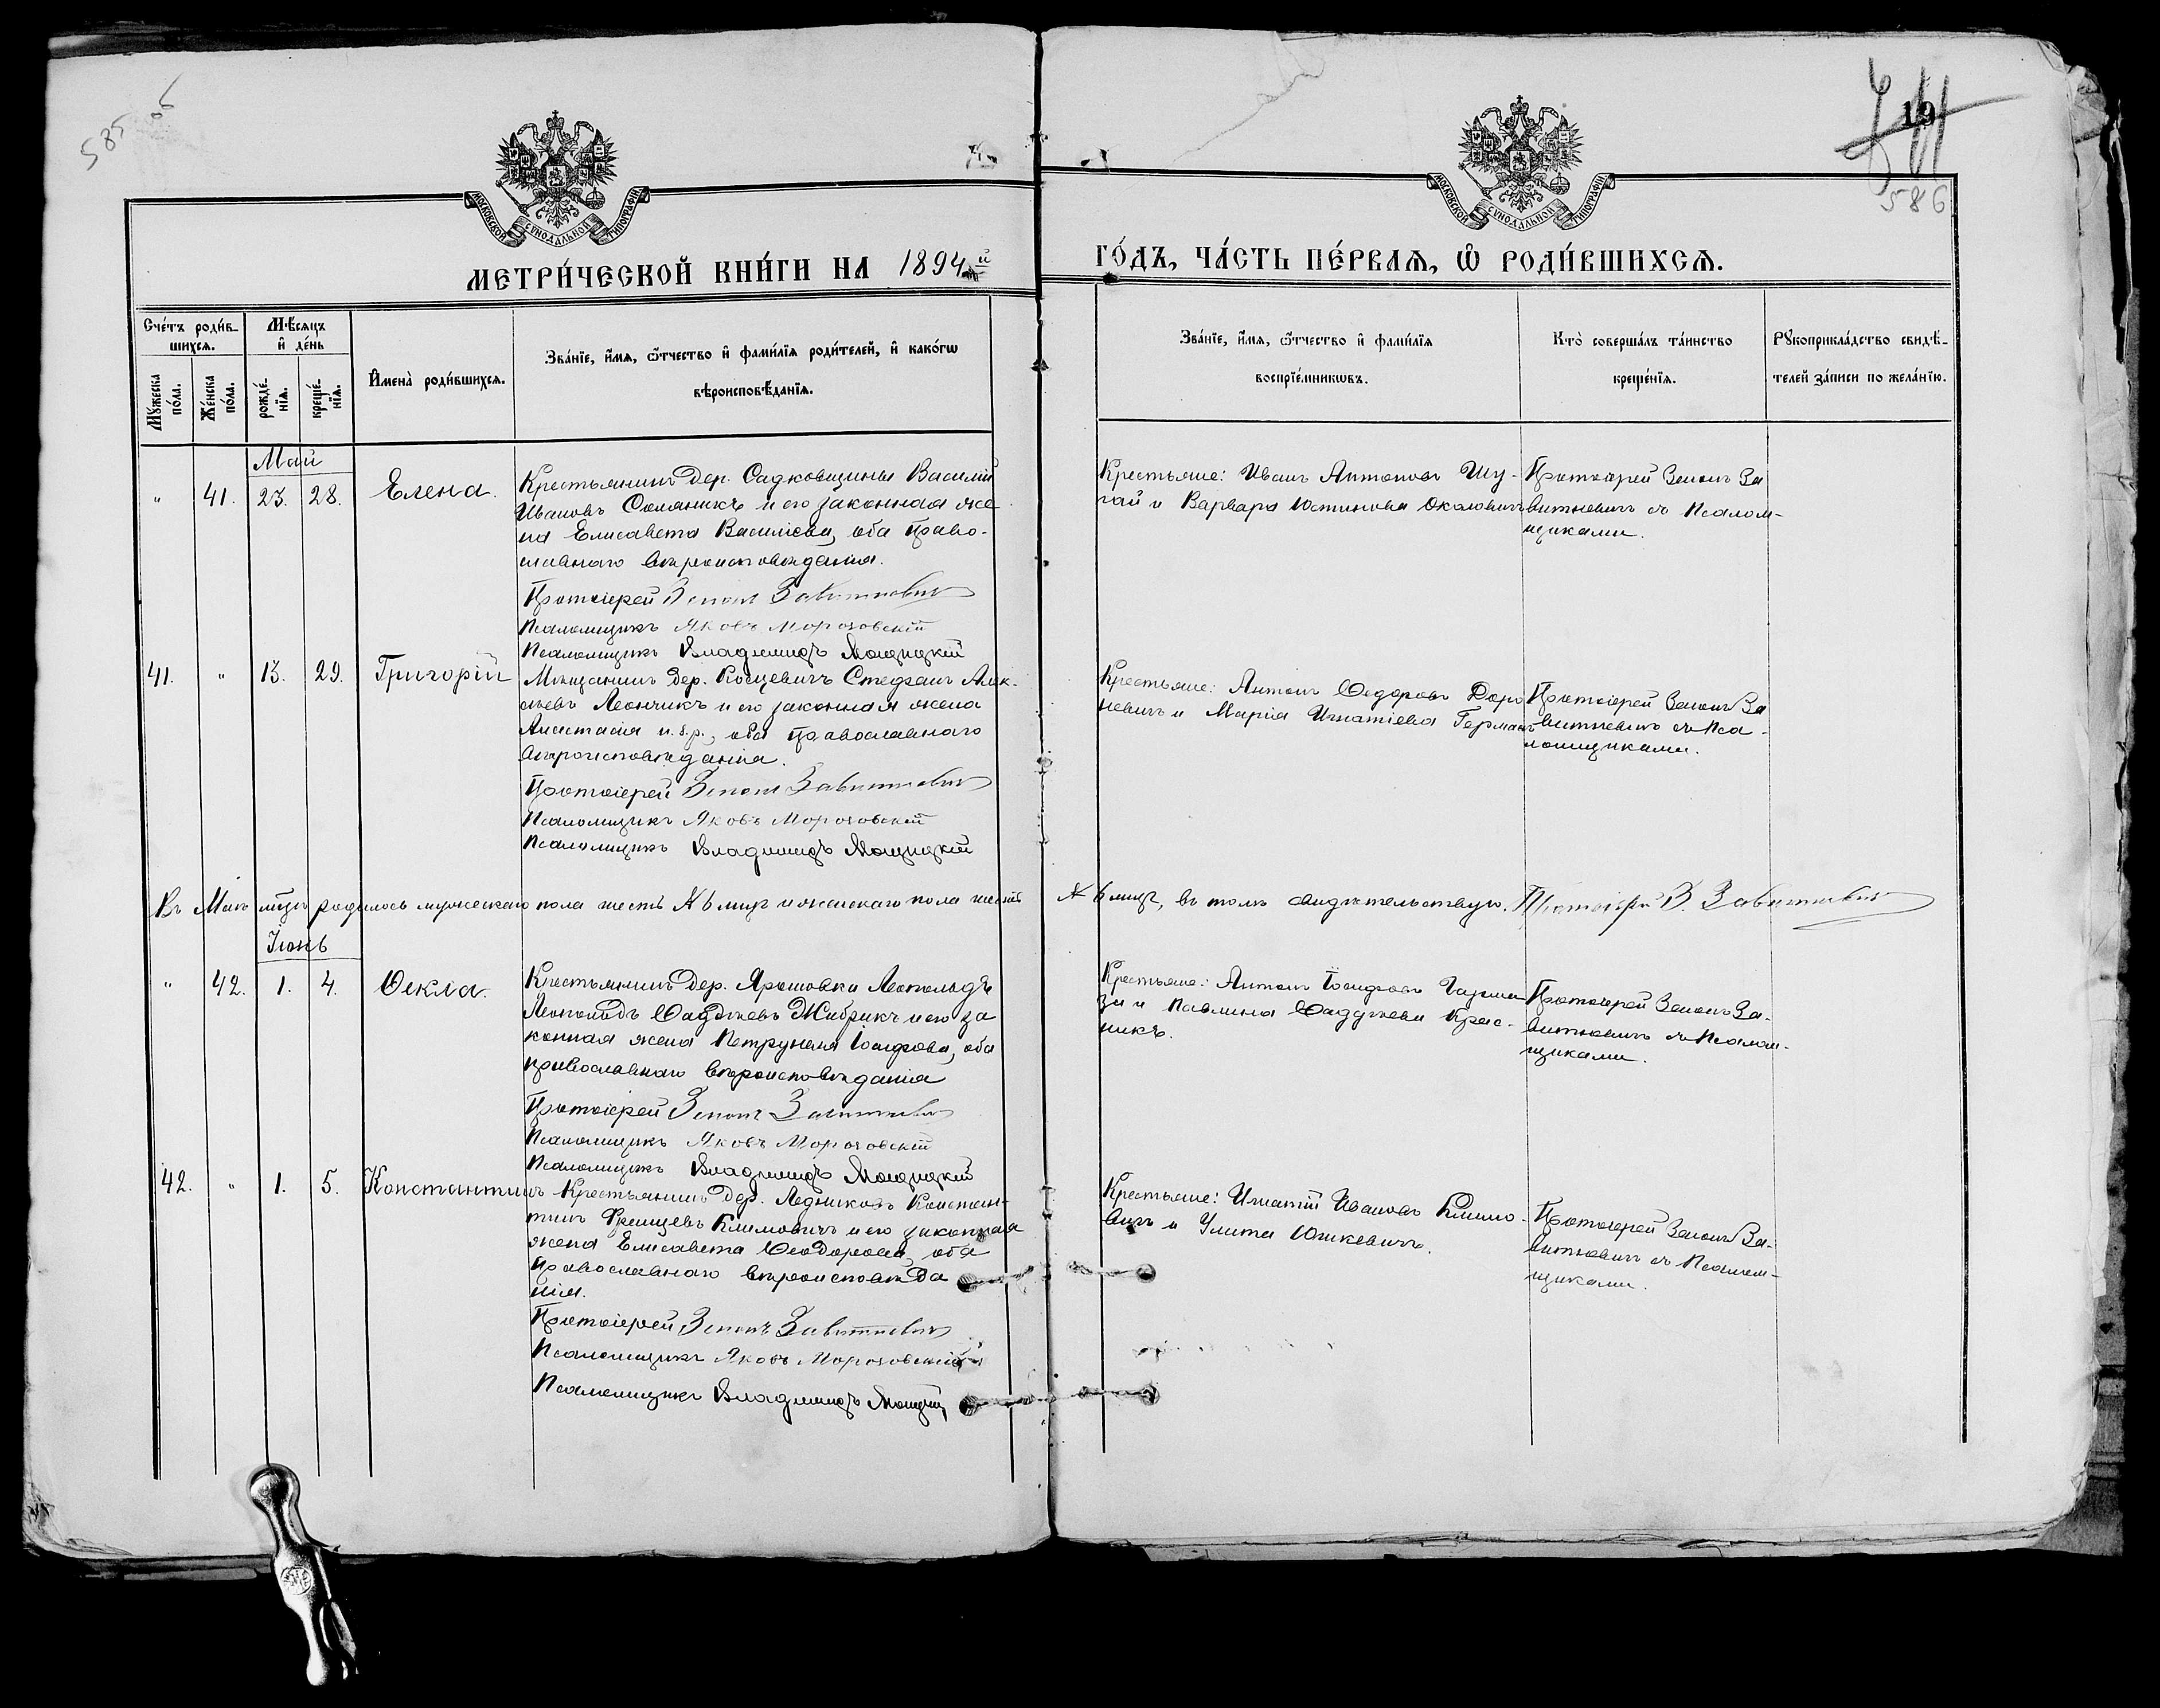 585 об
19
586
МОСКОВСКОЙ СѴНОДАЛЬНОЙ ТИПОГРАФІИ
МОСКОВСКОЙ СѴНОДАЛЬНОЙ ТИПОГРАФІИ
МЕТРИ́ЧЕСКОЙ КНИ́ГИ НА 1894й
ГО́ДЪ, ЧА́СТЬ ПЕ́РВАѦ, Ѽ РОДИ́ВШИХСѦ.
Сче́тъ роди́в-
шихсѧ.
Мꙋ́жеска по́ла.
Же́нска по́ла.
Мѣ́сѧцъ
и҆ де́нь
рожде́-
нїѧ.
креще́-
нїѧ.
И҆мена̀ роди́вшихсѧ.
Зва́нїе, и҆́мѧ, ѻ҆́тчество и҆ фами́лїѧ роди́телей, и҆ како́гѡ
вѣроисповѣ́данїѧ.
Зва́нїе, и҆́мѧ, ѻ҆́тчество и҆ фами́лїѧ
воспрїе́мникѡвъ.
Кто̀ соверша́лъ та́инство
креще́нїѧ.
Рꙋкоприкла́дство свидѣ́-
телей за́писи по жела́нїю.
Май
„ 41. 23. 28. Елена.
Крестьянинъ дер. Садковщины Василій
Ивановъ Соляникъ и его законная же
на Елисавета Василіева, оба право-
славнаго вѣроисповѣданія.
Протоіерей Зенонъ Завитневичъ
Псаломщикъ Яковъ Морозовскій
Псаломщикъ Владимиръ Мощицкій
Крестьяне: Иванъ Антоновъ Шу-
гай и Варвара Юстинова Околовичъ
Протоіерей Зенонъ За
витневичъ съ Псалом-
щиками.
41. „ 13. 29. Григорій
Мѣщанинъ дер. Косцевичъ Стефанъ Алек-
сѣевъ Леончикъ и его законная жена
Анастасія н. д. р., оба православнаго
вѣроисповѣданія.
Протоіерей Зенонъ Завитневичъ
Псаломщикъ Яковъ Морозовскій
Псаломщикъ Владимиръ Мощицкій
Крестьяне: Антонъ Ѳедоровъ Доро
невичъ и Марія Игнатіева Германъ
Протоіерей Зенонъ За
витневичъ съ Пса-
ломщиками.
Въ Маѣ мѣсяцѣ родилось мужескаго пола шесть № 6 мир и женскаго пола шесть
№ 6 мир, въ томъ свидѣтельствую. Протоіерей З. Завитневичъ
Іюнь
„ 42. 1. 4. Ѳекла.
Крестьянинъ дер. Ярошовки Леопольдъ
Леопольдъ Ѳаддѣевъ Жибрикъ и его за
конная жена Петрунеля Іосифова, оба
православнаго вѣроисповѣданія
Протоіерей Зенонъ Завитневичъ
Псаломщикъ Яковъ Морозовскій
Псаломщикъ Владимиръ Мощицкій
Крестьяне: Антонъ Іосифовъ
и Павлина Ѳаддѣева Крас-
никъ.
Протоіерей Зенонъ За-
витневичъ съ Псалом-
щиками.
42. „ 1. 5. Константинъ
Крестьянинъ дер. Ледниковъ Констан-
тинъ Францевъ Климовичъ и его законная
жена Елисавета Ѳеодорова, оба
православнаго вѣроисповѣда
нія.
Протоіерей Зенонъ Завитневичъ
Псаломщикъ Яковъ Морозовскій
Псаломщикъ Владимиръ Мощицкій
Крестьяне: Игнатій Ивановъ Климо-
вичъ и Улита Юшкевичъ.
Протоіерей Зенонъ За-
витневичъ съ Псалом-
щиками.